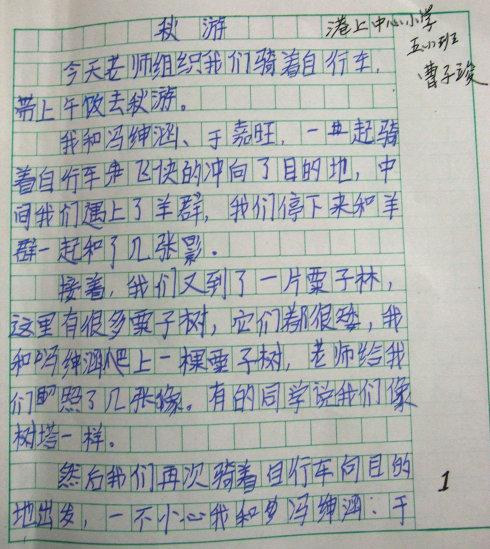 秋游
港上中心小学
五(6)班
曹子骏
今天老师组织我们骑着自行车,
带上午饭去秋游。
我和冯绅涵、于嘉旺,一起骑
着自行车飞快的冲向了目的地,中
间我们遇上了羊群,我们停下来和羊
群一起和了几张影。
接着,我们又到了一片栗子林,
这里有很多栗子树,它们都很矮,我
和冯绅涵爬上一棵栗子树,老师给我
们照了几张像。有的同学说我们像
树塔一样。
然后我们再次骑着自行车向目的
地出发,一不小心我和冯绅涵、于
1